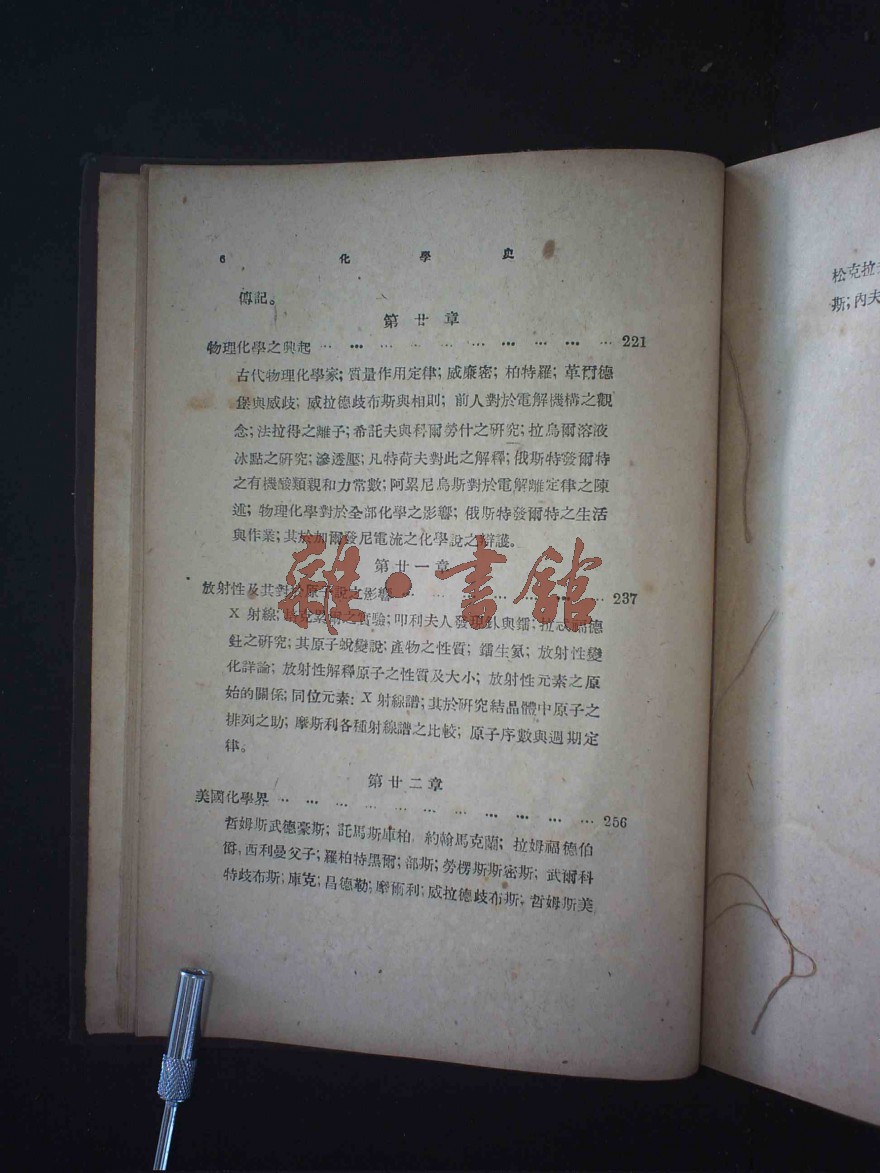 6 化學史
傳記。
第廿章
物理化學之興起 ………………………… 221
古代物理化學家;質量作用定律;威廉密;柏特羅;革爾德
堡與威歧;威拉德歧布斯與相則;前人對於電解機構之觀
念;法拉得之離子;希託夫與科爾勞什之研究;拉烏爾溶液
冰點之研究;滲透壓;凡特荷夫對此之解釋;俄斯特發爾特
之有機酸類親和力常數;阿累尼烏斯對於電解離定律之陳
述;物理化學對於全部化學之影響;俄斯特發爾特之生活
與作業;其於加爾發尼電流之化學說之辯護。
第廿一章
放射性及其對於原子說之影響 ………………… 237
X 射線;柏克累爾之實驗;叩利夫人發現釙與鐳;拉忒福德
鈾之研究;其原子蛻變說;產物之性質;鐳生氦;放射性變
化詳論;放射性解釋原子之性質及大小;放射性元素之原
始的關係;同位元素;X 射線譜;其於研究結晶體中原子之
排列之助;摩斯利各種射線譜之比較;原子序數與週期定
律。
第廿二章
美國化學界 ………………………… 256
哲姆斯武德豪斯;託馬斯庫柏,約翰馬克蘭;拉姆福德伯
爵,西利曼父子;羅柏特黑爾;部斯;勞楞斯斯密斯;武爾科
特歧布斯;庫克;昌德勒;摩爾利;威拉德歧布斯;哲姆斯美
松克拉
斯;內夫
雜·書館